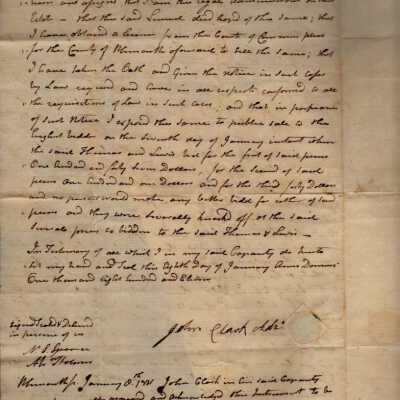 heirs and assigns that I am the legal Administrator on said
Estate – that the said Lemuel died seized of the same; that
I have obtained a License from the Court of Common pleas
for the County of Plymouth aforesaid to sell the same; that
I have taken the Oath and given the notice in such cases
by Law required and have in all respects conformed to all
the requisitions of Law in such cases; and that in pursuance
of such Notice I exposed the same to public sale to the
highest bidder on the Seventh day of January instant when
the said Thomas and Lewis bid for the first of said pieces
One hundred and fifty seven Dollars, for the second of said
pieces One hundred and one Dollars and for the third fifty Dollars
and no person would make any better bidd for either of said
pieces and they were severally knocked off at the said
several prices so bidden to the said Thomas & Lewis –
In Testimony of all which I in my said Capacity do hereto
set my hand and Seal this Eighth day of January Anno Domini
One thousand eight hundred and Eleven
Signed Sealed & Delivered
in presence of us
John Clark Adr
N. P. Spooner
Plymouth ss. January 8th 1811 John Clark in his said Capacity
acknowledged this Instrument to be